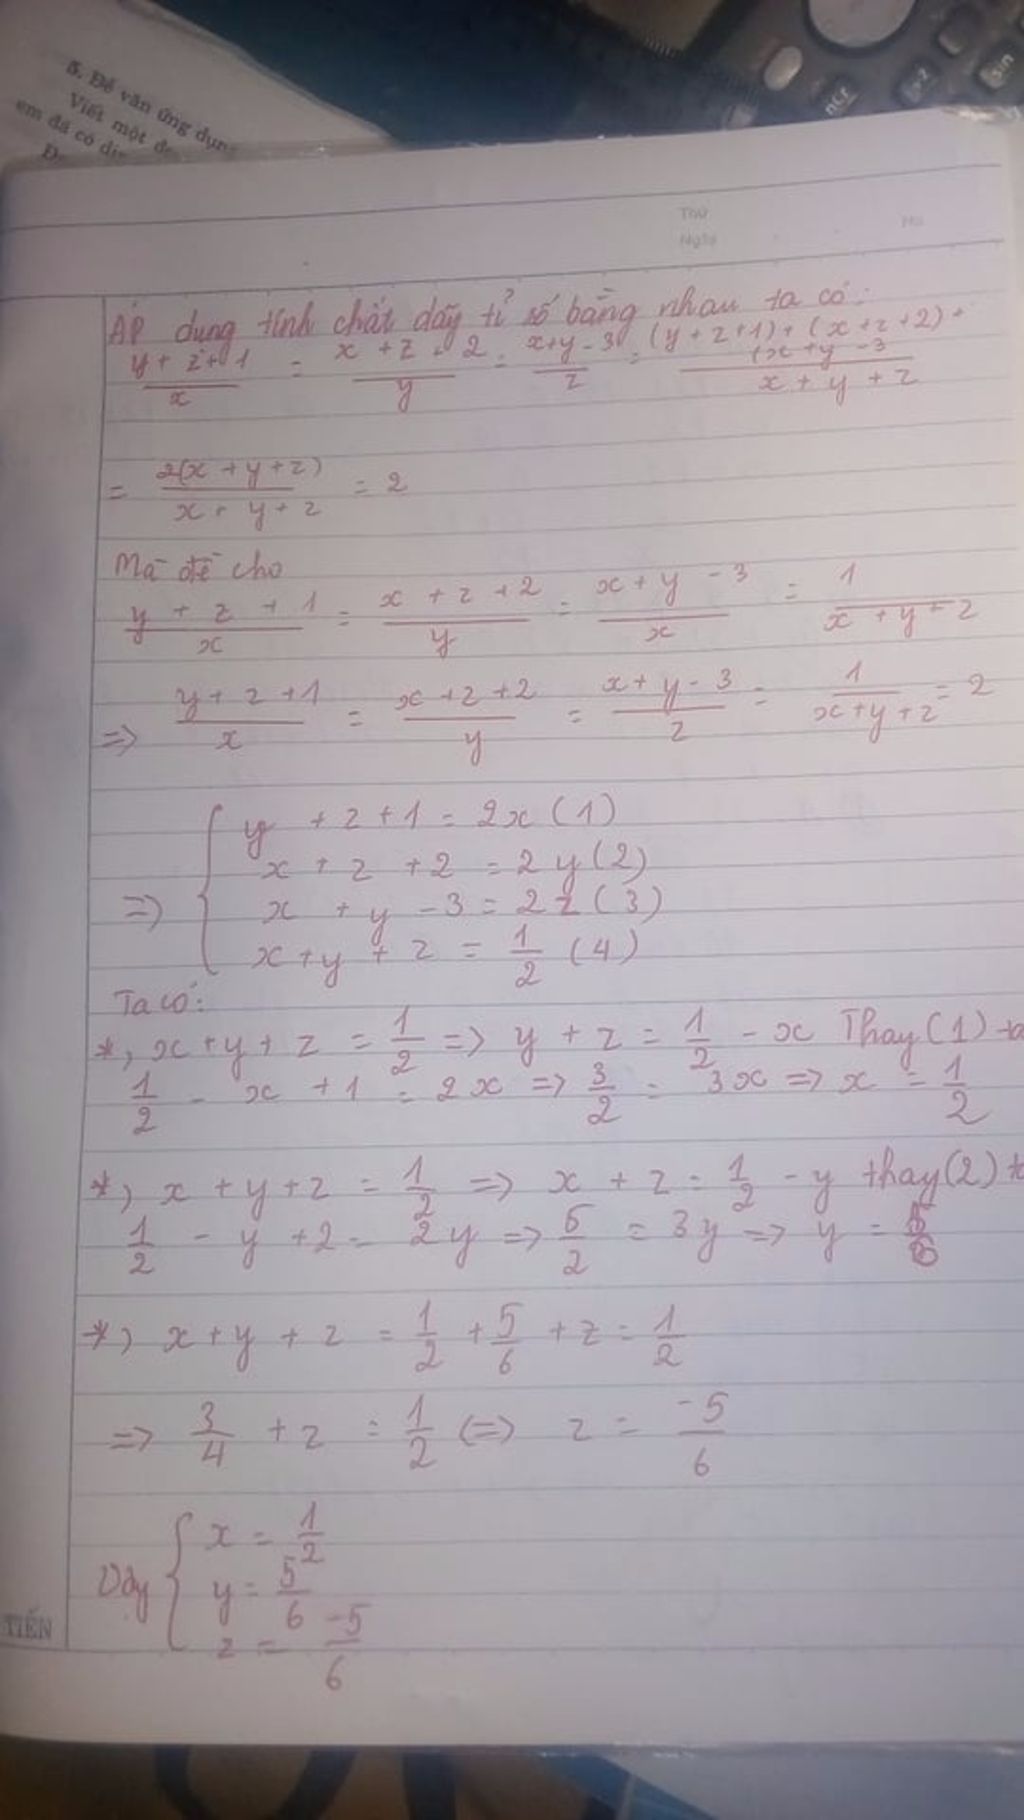 5. Đề văn ứng dụng
Viết một
em đã có
nCr
sin
Thứ
Ngày
Áp dụng tính chất dãy tỉ số bằng nhau ta có:
y + z + 1 / x = x + z + 2 / y = x+y - 3 / z = (y + z + 1) + (x + z + 2) + (x + y - 3 / x + y + z
= 2(x + y + z) / x + y + z = 2
Mà đề cho
y + z + 1 / x = x + z + 2 / y = x + y - 3 / x = 1 / x + y + z
=> y + z + 1 / x = x + z + 2 / y = x + y - 3 / z = 1 / x + y + z = 2
=> { y + z + 1 = 2x (1)
x + z + 2 = 2y (2)
x + y - 3 = 2z (3)
x + y + z = 1/2 (4)
Ta có:
*, x + y + z = 1/2 => y + z = 1/2 - x Thay (1) ta
1/2 - x + 1 = 2x => 3/2 = 3x => x = 1/2
*, x + y + z = 1/2 => x + z = 1/2 - y thay (2) t
1/2 - y + 2 = 2y => 5/2 = 3y => y = 5/6
*, x + y + z = 1/2 + 5/6 + z = 1/2
=> 3/4 + z = 1/2 (=> z = -5/6
Vậy { x = 1/2
y = 5/6
z = -5/6
TIẾN